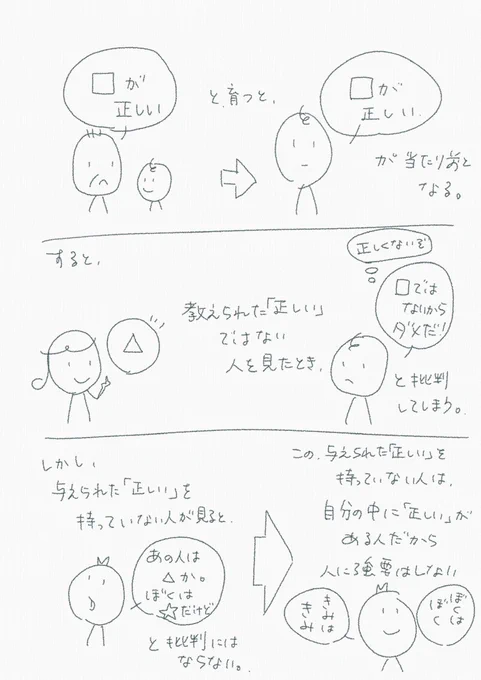 □が
正しい
と育つと、
□が
正しい.
が当たり前と
なる。
すると、
△
教えられた「正しい」
ではない
人を見たとき、
正しくないぞ
□では
ないから
ダメだ!!
と批判
してしまう。
しかし、
与えられた「正しい」を
持っていない人が見ると、
あの人は
△か。
ぼくは
☆だけど
と批判には
ならない。
この、与えられた「正しい」を
持っていない人は、
自分の中に「正しい」が
ある人だから
人に強要はしない
きみは
きみ
ぼくは
ぼく